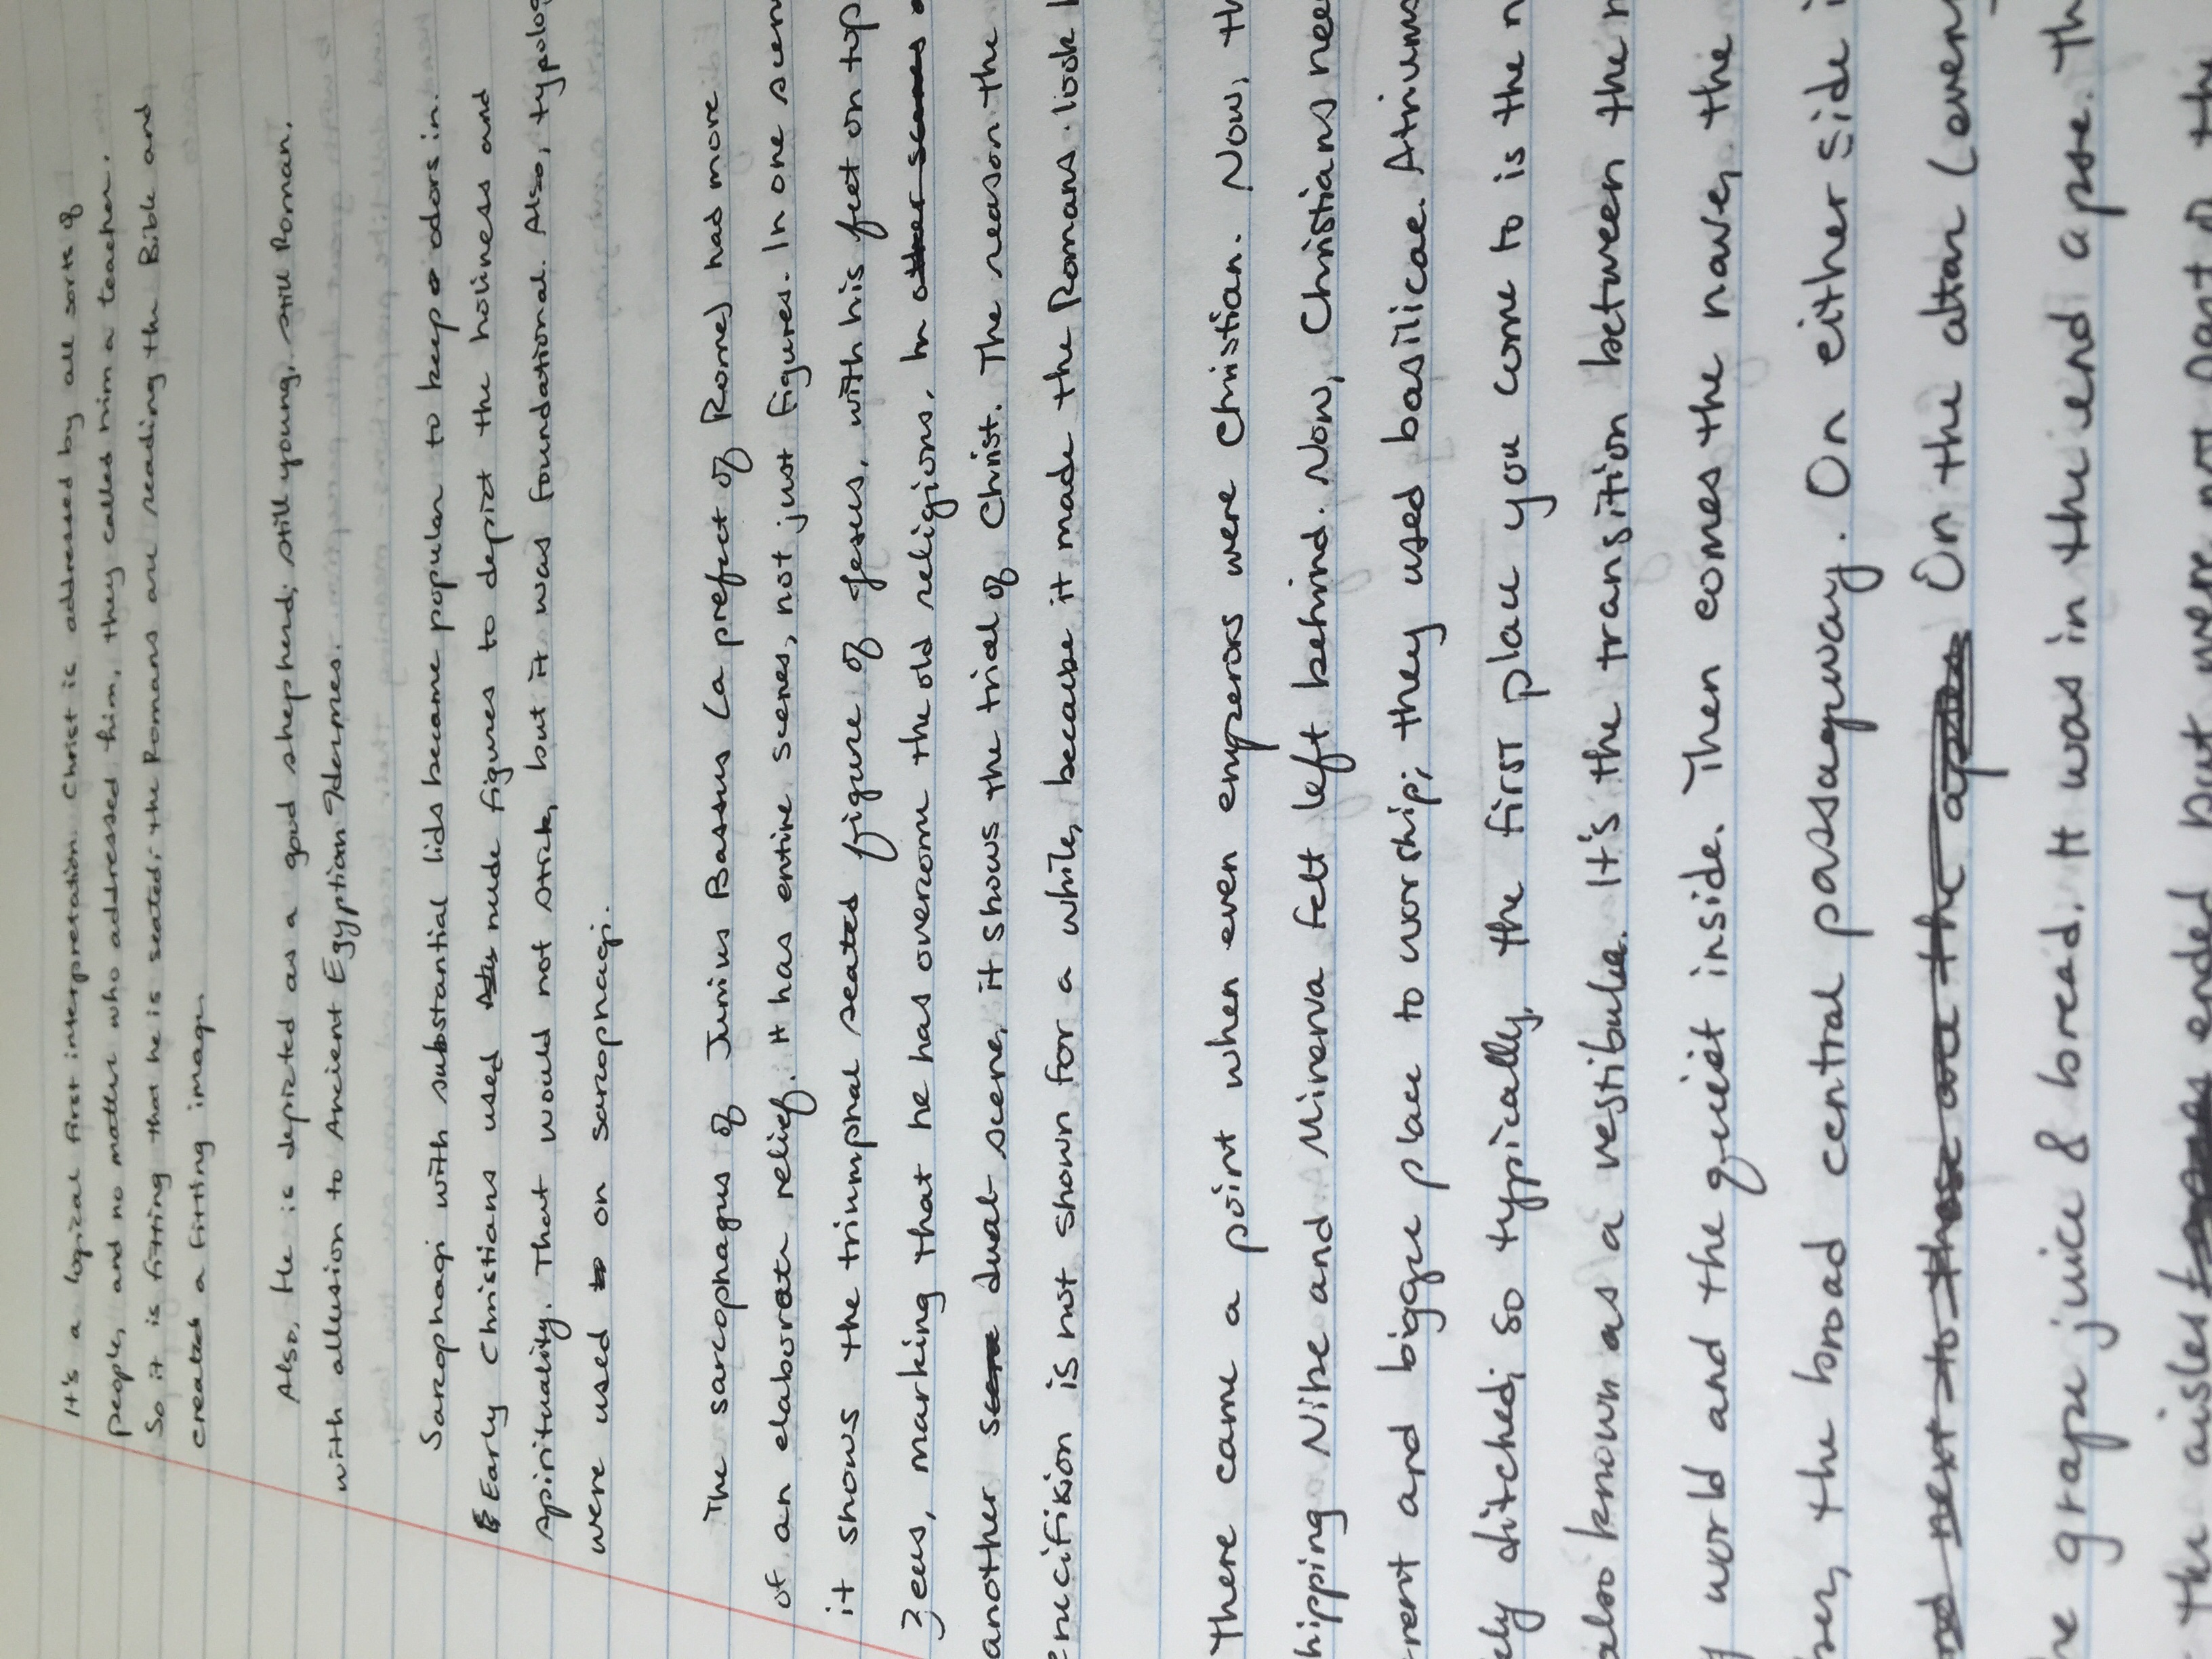 It's a logical first interpretation. Christ is addressed by all sorts of
people, and no matter who addressed him, they called him a teacher.
So it is fitting that he is seated; the Romans are reading the Bible and
created a fitting image.
Also, He is depicted as a good shepherd; still young, still Roman.
with allusion to Ancient Egyptian
Sarcophagi with substantial lids became popular to keep odors in.
Early Christians used nude figures to depict the holiness and
spirituality. That would not stick, but it was foundational. Also, typolog
were used on sarcophagi.
The sarcophagus of Junius Bassus (a prefect of Rome) had more
of an elaborate relief. It has entire scenes, not just figures. In one scen
it shows the triumphal seated figure of Jesus, with his feet on top
Zeus, marking that he has overcome the old religions. In other scenes
another scene dual scene, it shows the trial of Christ. The reason the
crucifixion is not shown for a while, because it made the Romans look
There came a point when even emperors were Christian. Now, th
hipping Nike and Minerva felt left behind. Now, Christians nee
rent and bigger place to worship; they used basilicae. Atriums
ely ditched; so typically, the first place you come to is the n
also known as a vestibule. It's the transition between the n
y world and the quiet inside. Then comes the nave, the
the broad central passageway. On either side i
and next to those are the apses On the altar (even
he grape juice & bread. It was in the end apse. Th
the aisles ended, but were part of the